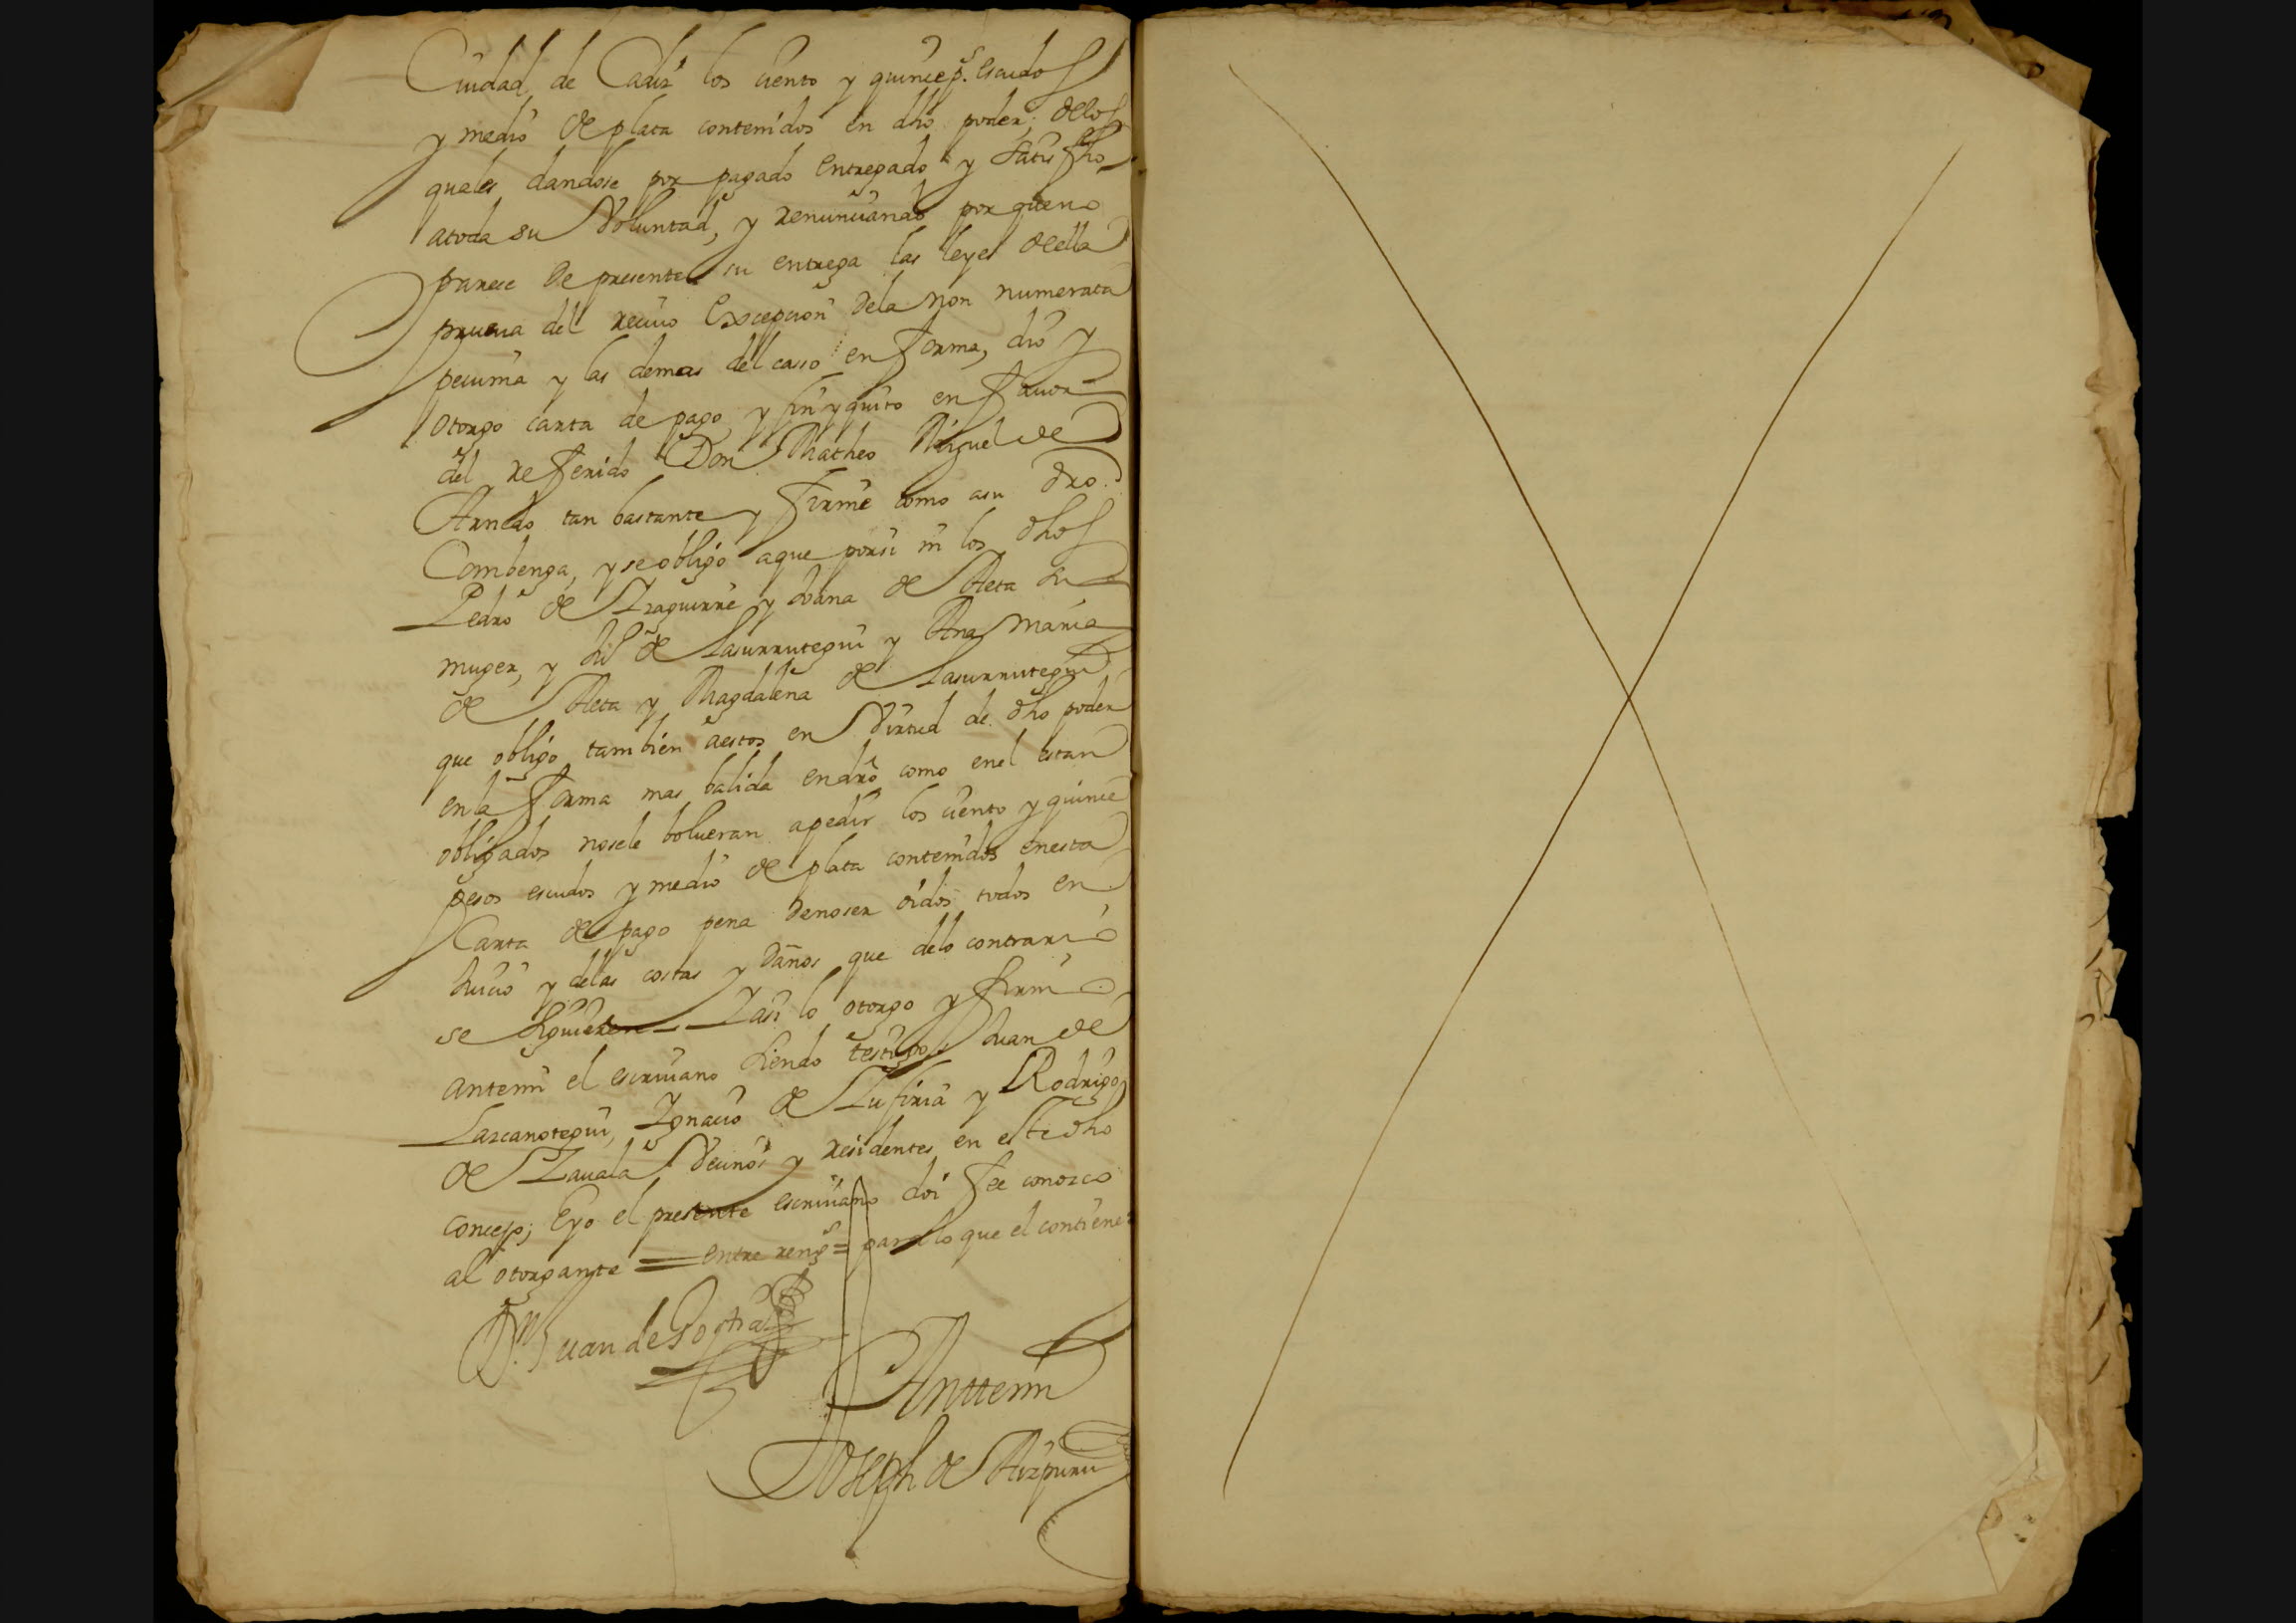 Ciudad de Cadiz los ciento y quince p.s escudos
y medio de plata contenidos en dho poder, delos
quales dandose por pagado entregado y satisfho
atoda su Voluntad, y renunciando por queno
parece de presente su entrega las leyes de ella
prueua del reciuo excepcion dela non numerata
pecunia y las demas del casso en forma, dio y
otorgo carta de pago y finyquito en fauor
del referido Don Matheo Miguel de
Arnedo tan bastante y firme como asu dro.
Combenga, y se obligo aque porsi ni los dhos
Pedro de Izaguirre y Joana de Aeta su
muger, y de Lasurrutegui y Ana Maria
de Aeta y Magdalena de Lasurrutegui
que obligo tambien aestos en Virtud de dho poder
enla forma mas balida endro como enel estan
obligados nosele bolueran apedir los ciento y quince
pesos escudos y medio de plata contenidos enesta
Carta de pago pena denoser oidos todos en
Juicio y delas costas y daños que delo contrario
se siguieren Yasi lo otorgo y firmo
antemi el escriuano siendo testigos Juan de
Lazcanotegui, Ignacio de Lufiria y Rodrigo
de Zauala Vecinos y residentes en este dho
concejo; Eyo el presente escriuano doi fee conozco
al otorgante = entre reng.s = para lo que el contiene
D.n Juan de
Anttemi
Joseph de Aizpuru